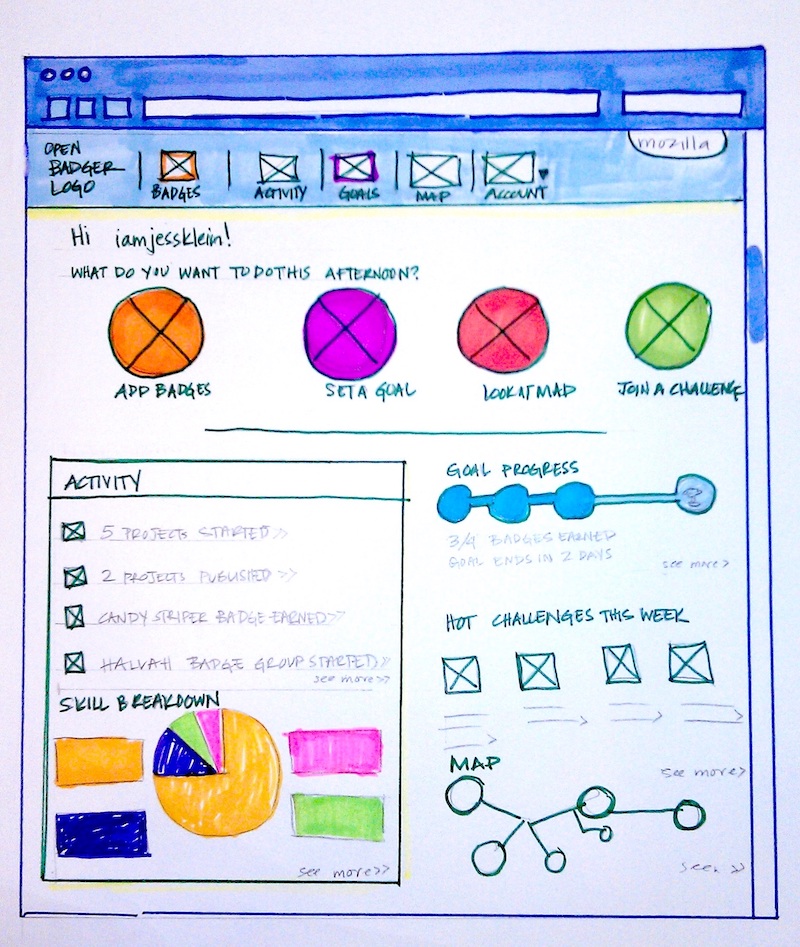 OPEN
BADGER
LOGO
BADGES
ACTIVITY
GOALS
MAP
ACCOUNT
mozilla
Hi iamjessklein!
WHAT DO YOU WANT TO DO THIS AFTERNOON?
ADD BADGES
SET A GOAL
LOOK AT MAP
JOIN A CHALLENGE
ACTIVITY
5 PROJECTS STARTED >>
2 PROJECTS PUBLISHED >>
CANDY STRIPER BADGE EARNED >>
HALVAH BADGE GROUP STARTED >>
see more >>
SKILL BREAKDOWN
see more >>
GOAL PROGRESS
3/4 BADGES EARNED
GOAL ENDS IN 2 DAYS
see more >
HOT CHALLENGES THIS WEEK
see more >
MAP